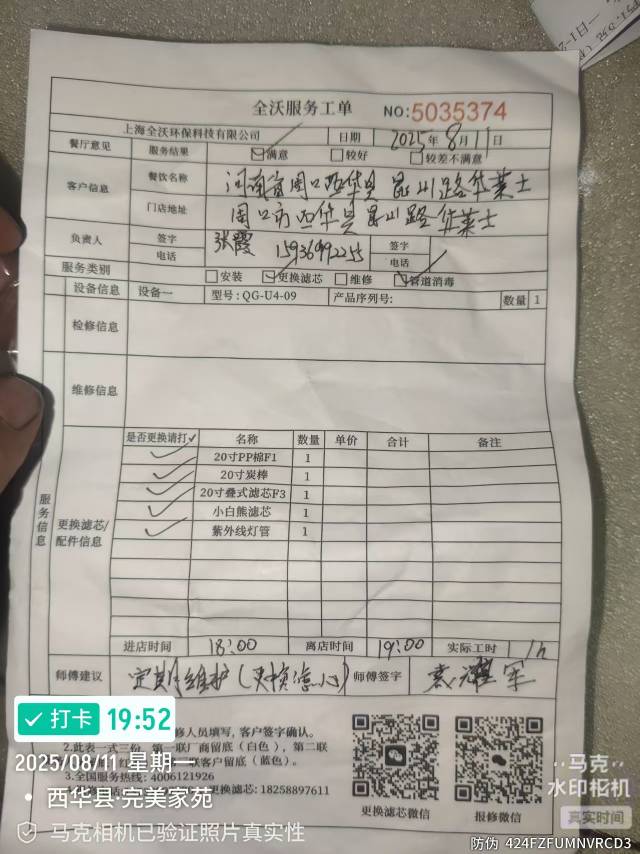 全沃服务工单 NO:5035374
上海全沃环保科技有限公司 日期 2025年8月11日
餐厅意见 服务结果 ☑满意 □较好 □较差不满意
客户信息 餐饮名称 河南省周口西华县昆山路华莱士
门店地址 周口市西华县昆山路华莱士
负责人 签字 张霞 签字
电话 15936992255 电话
服务类别 □安装 ☑更换滤芯 □维修 ☑管道消毒
设备信息 设备一 型号:QG-U4-09 产品序列号: 数量 1
检修信息
维修信息
服务信息
更换滤芯/配件信息
是否更换请打✓ 名称 数量 单价 合计 备注
✓ 20寸PP棉F1 1
✓ 20寸炭棒 1
✓ 20寸叠式滤芯F3 1
✓ 小白熊滤芯 1
✓ 紫外线灯管 1
进店时间 18:00 离店时间 19:00 实际工时 1h
师傅建议 定期维护(更换 师傅签字 军
修人员填写,客户签字确认。
2.此表一式三份,第一联厂商留底(白色),第二联
联客户留底(蓝色)。
3.全国服务热线:4006121926
更换滤芯:18258897611
更换滤芯微信 报修微信
打卡 19:52
2025/08/11 星期一
西华县·完美家苑
马克相机已验证照片真实性
马克
水印相机
真实时间
防伪 424FZFUMNVRCD3